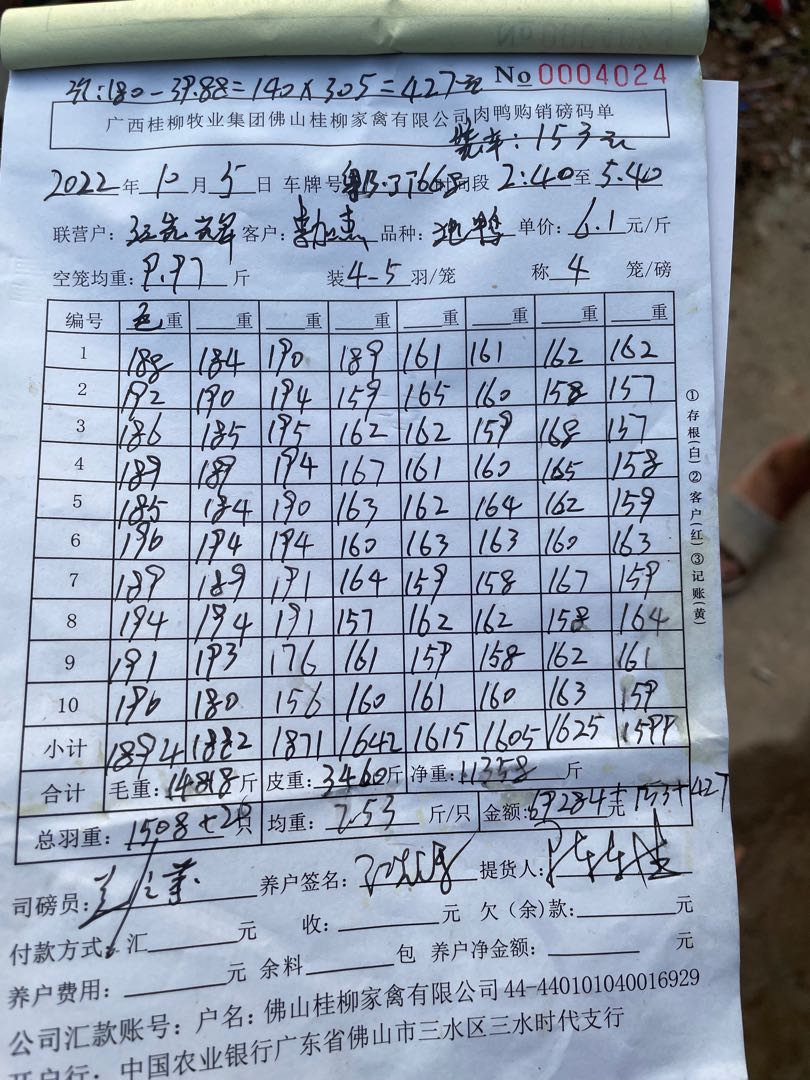 180-39.88=140×305=427元
№ 0004024
广西桂柳牧业集团佛山桂柳家禽有限公司肉鸭购销磅码单
装车:153元
2022年10月5日 车牌号 时间段 2:40至5.40
联营户: 客户: 品种: 鸭 单价:6.1元/斤
空笼均重:9.97斤 装4-5羽/笼 称4笼/磅
编号 毛重 重 重 重 重 重 重 重
1 188 184 190 189 161 161 162 162
2 192 190 194 159 165 160 158 157
3 186 185 195 162 162 159 168 157
4 189 189 194 167 161 160 165 158
5 185 184 190 163 162 164 162 159
6 190 194 194 160 163 163 160 163
7 189 189 191 164 159 158 167 159
8 194 194 191 157 162 162 158 164
9 191 193 176 161 159 158 162 161
10 190 180 156 160 161 160 163 159
小计 1894 1882 1871 1642 1615 1605 1625 1599
合计 毛重:14818斤 皮重:3460斤 净重:11358斤
总羽重:1508+26只 均重:7.53斤/只 金额:69284元+153+427
司磅员: 养户签名: 提货人:
付款方式:汇 元 收: 元 欠(余)款: 元
养户费用: 元 余料 包 养户净金额: 元
公司汇款账号:户名:佛山桂柳家禽有限公司44-440101040016929
开户行:中国农业银行广东省佛山市三水区三水时代支行
①存根(白)②客户(红)③记账(黄)